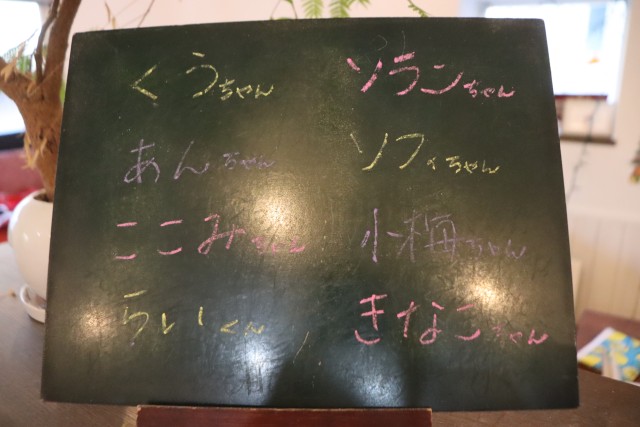 くうちゃん ソランちゃん
あんちゃん ソフィちゃん
ここみちゃん 小梅ちゃん
らいくん きなこちゃん